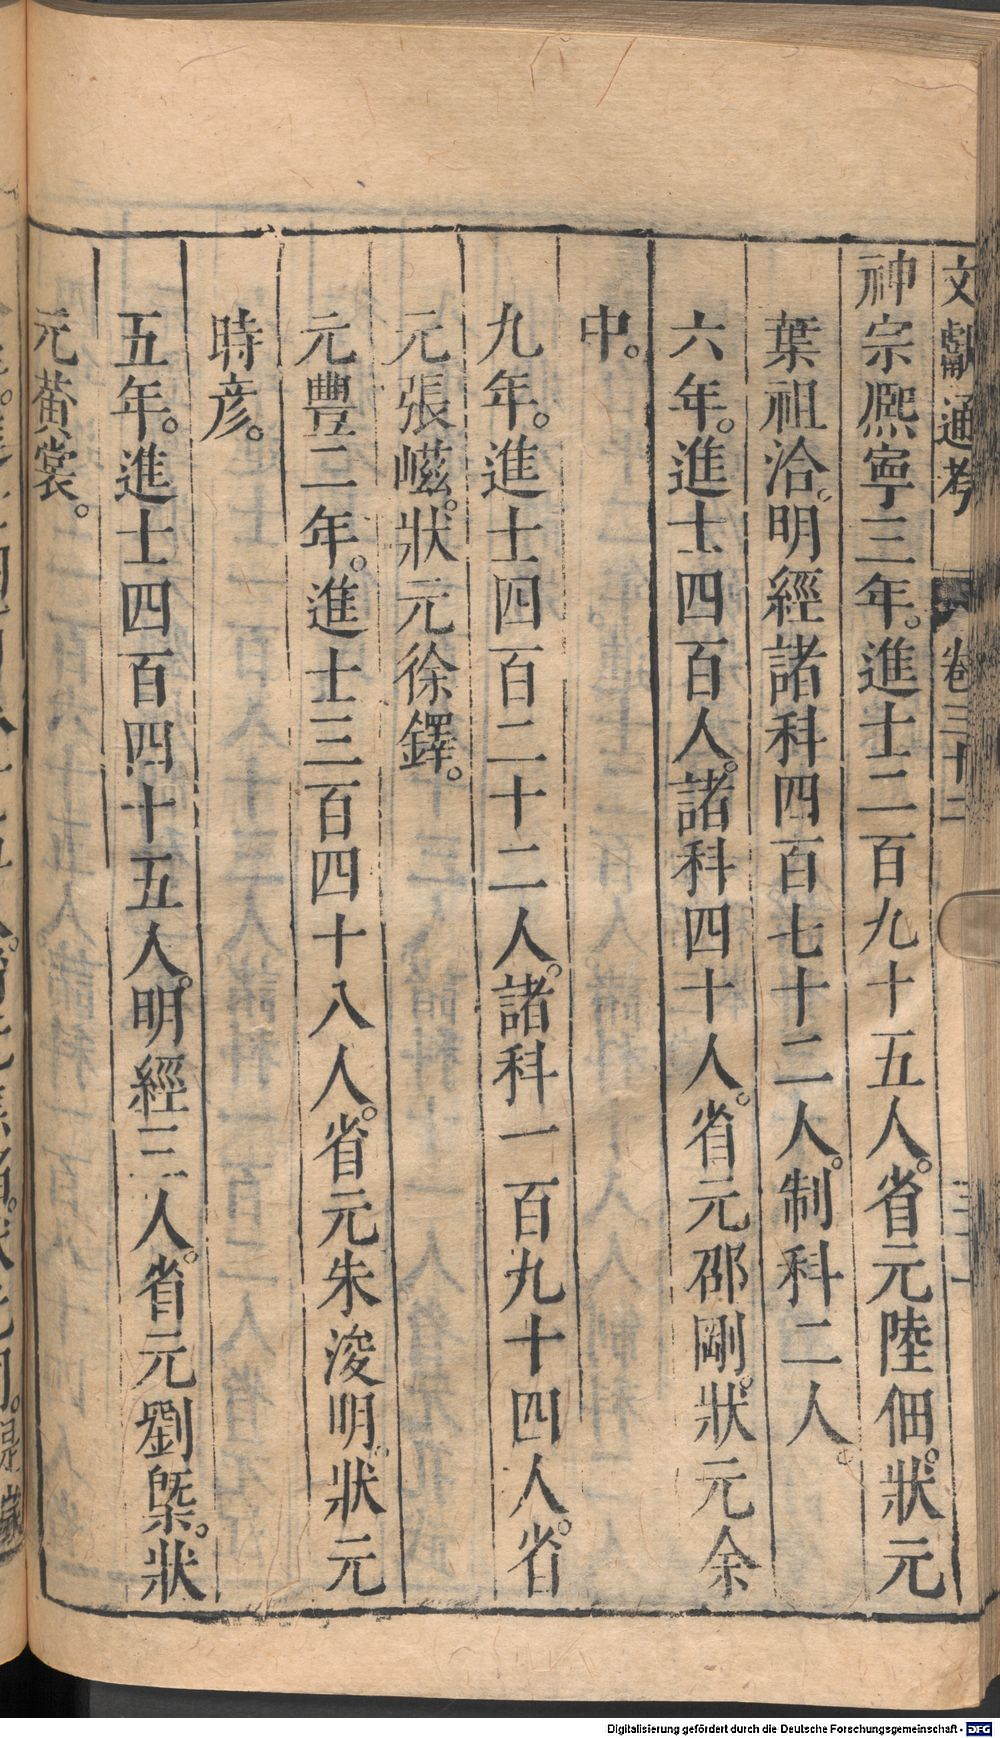 文獻通考 卷三十二
神宗熈寧三年。進士二百九十五人。省元陸佃。狀元
葉祖洽。明經諸科四百七十二人。制科二人。
六年。進士四百人。諸科四十人。省元邵剛。狀元余
中。
九年。進士四百二十二人。諸科一百九十四人。省
元張嵫。狀元徐鐸。
元豐二年。進士三百四十八人。省元朱浚明。狀元
時彥。
五年。進士四百四十五人。明經三人。省元劉槩。狀
元黃裳。
Digitalisierung gefördert durch die Deutsche Forschungsgemeinschaft - DFG